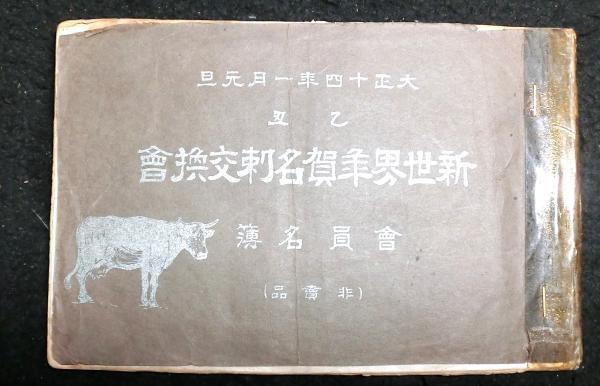 大正十四年一月元旦
乙丑
新世界年賀名刺交換會
會員名簿
(非賣品)